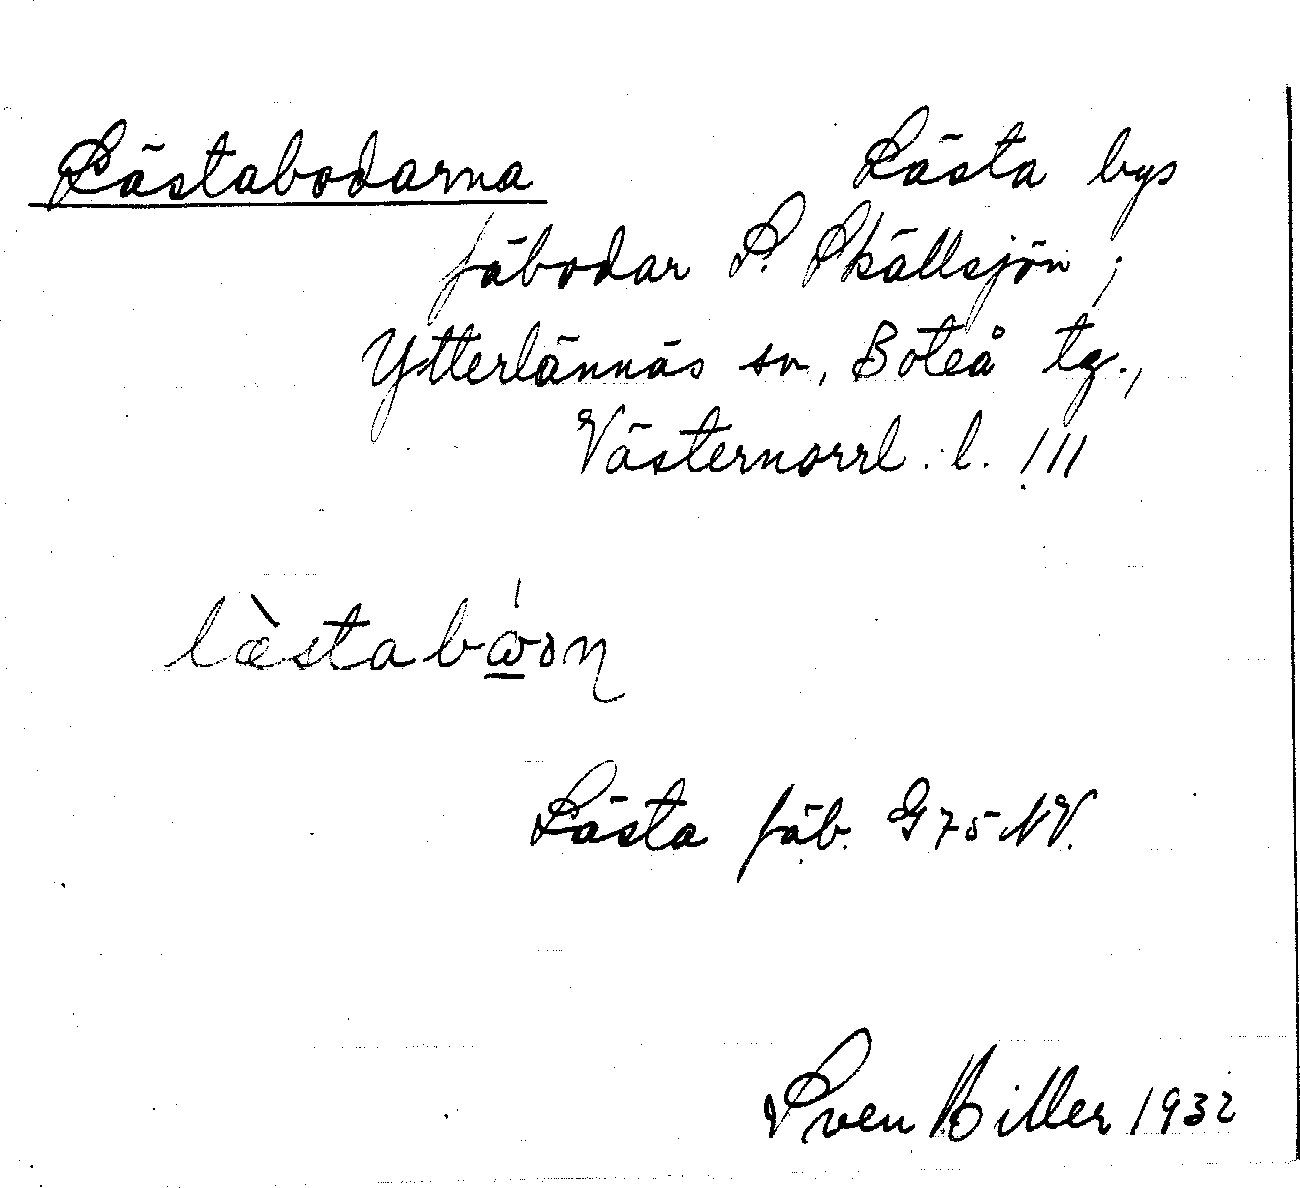 Lästabodarna Lästa bys
fäbodar S. Skällsjön ;
Ytterlännäs sn, Boteå tg.,
Västernorrl. l. !!!
læ̀stabώ̲ɔn
Lästa fäb. G 75 NV.
Sven Hiller 1932